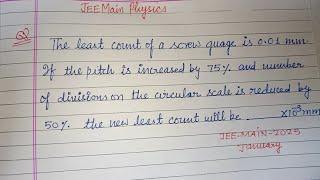 JEE Main Physics
Q. The least count of a screw guage is 0.01 mm
If the pitch is increased by 75% and number
of divisions on the circular scale is reduced by
50% the new least count will be . ×10⁻³mm
JEE-MAIN-2025
January